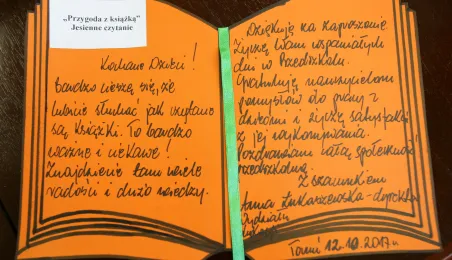 „Przygoda z książką”
Jesienne czytanie
Kochane Dzieci!
Bardzo cieszę się, że
lubicie słuchać jak czytane
są książki. To bardzo
ważne i ciekawe!
Znajdziecie tam wiele
radości i dużo wiedzy.
Dziękuję za zaproszenie.
Życzę Wam wspaniałych
dni w Przedszkolu.
Gratuluję nauczycielom
pomysłów do pracy z
dziećmi i życzę satysfakcji
z jej wykonywania.
Pozdrawiam całą społeczność
przedszkolną.
Z szacunkiem
Anna Łukaszewska - dyrektor
Wydziału
12.10.2017 r.